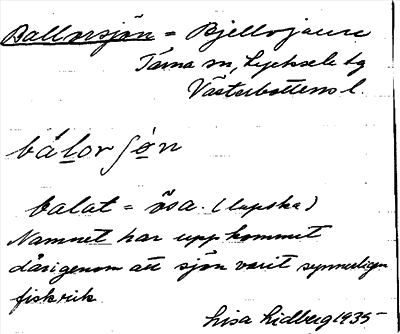 Ballorsjön = Bjellojaure
Tärna sn, Lycksele lg
Västerbottens l.
bálorʃón
balat = ösa. (lapska)
Namnet har uppkommit
därigenom att sjön varit synnerligen
fiskrik
Lisa Lidberg 1935